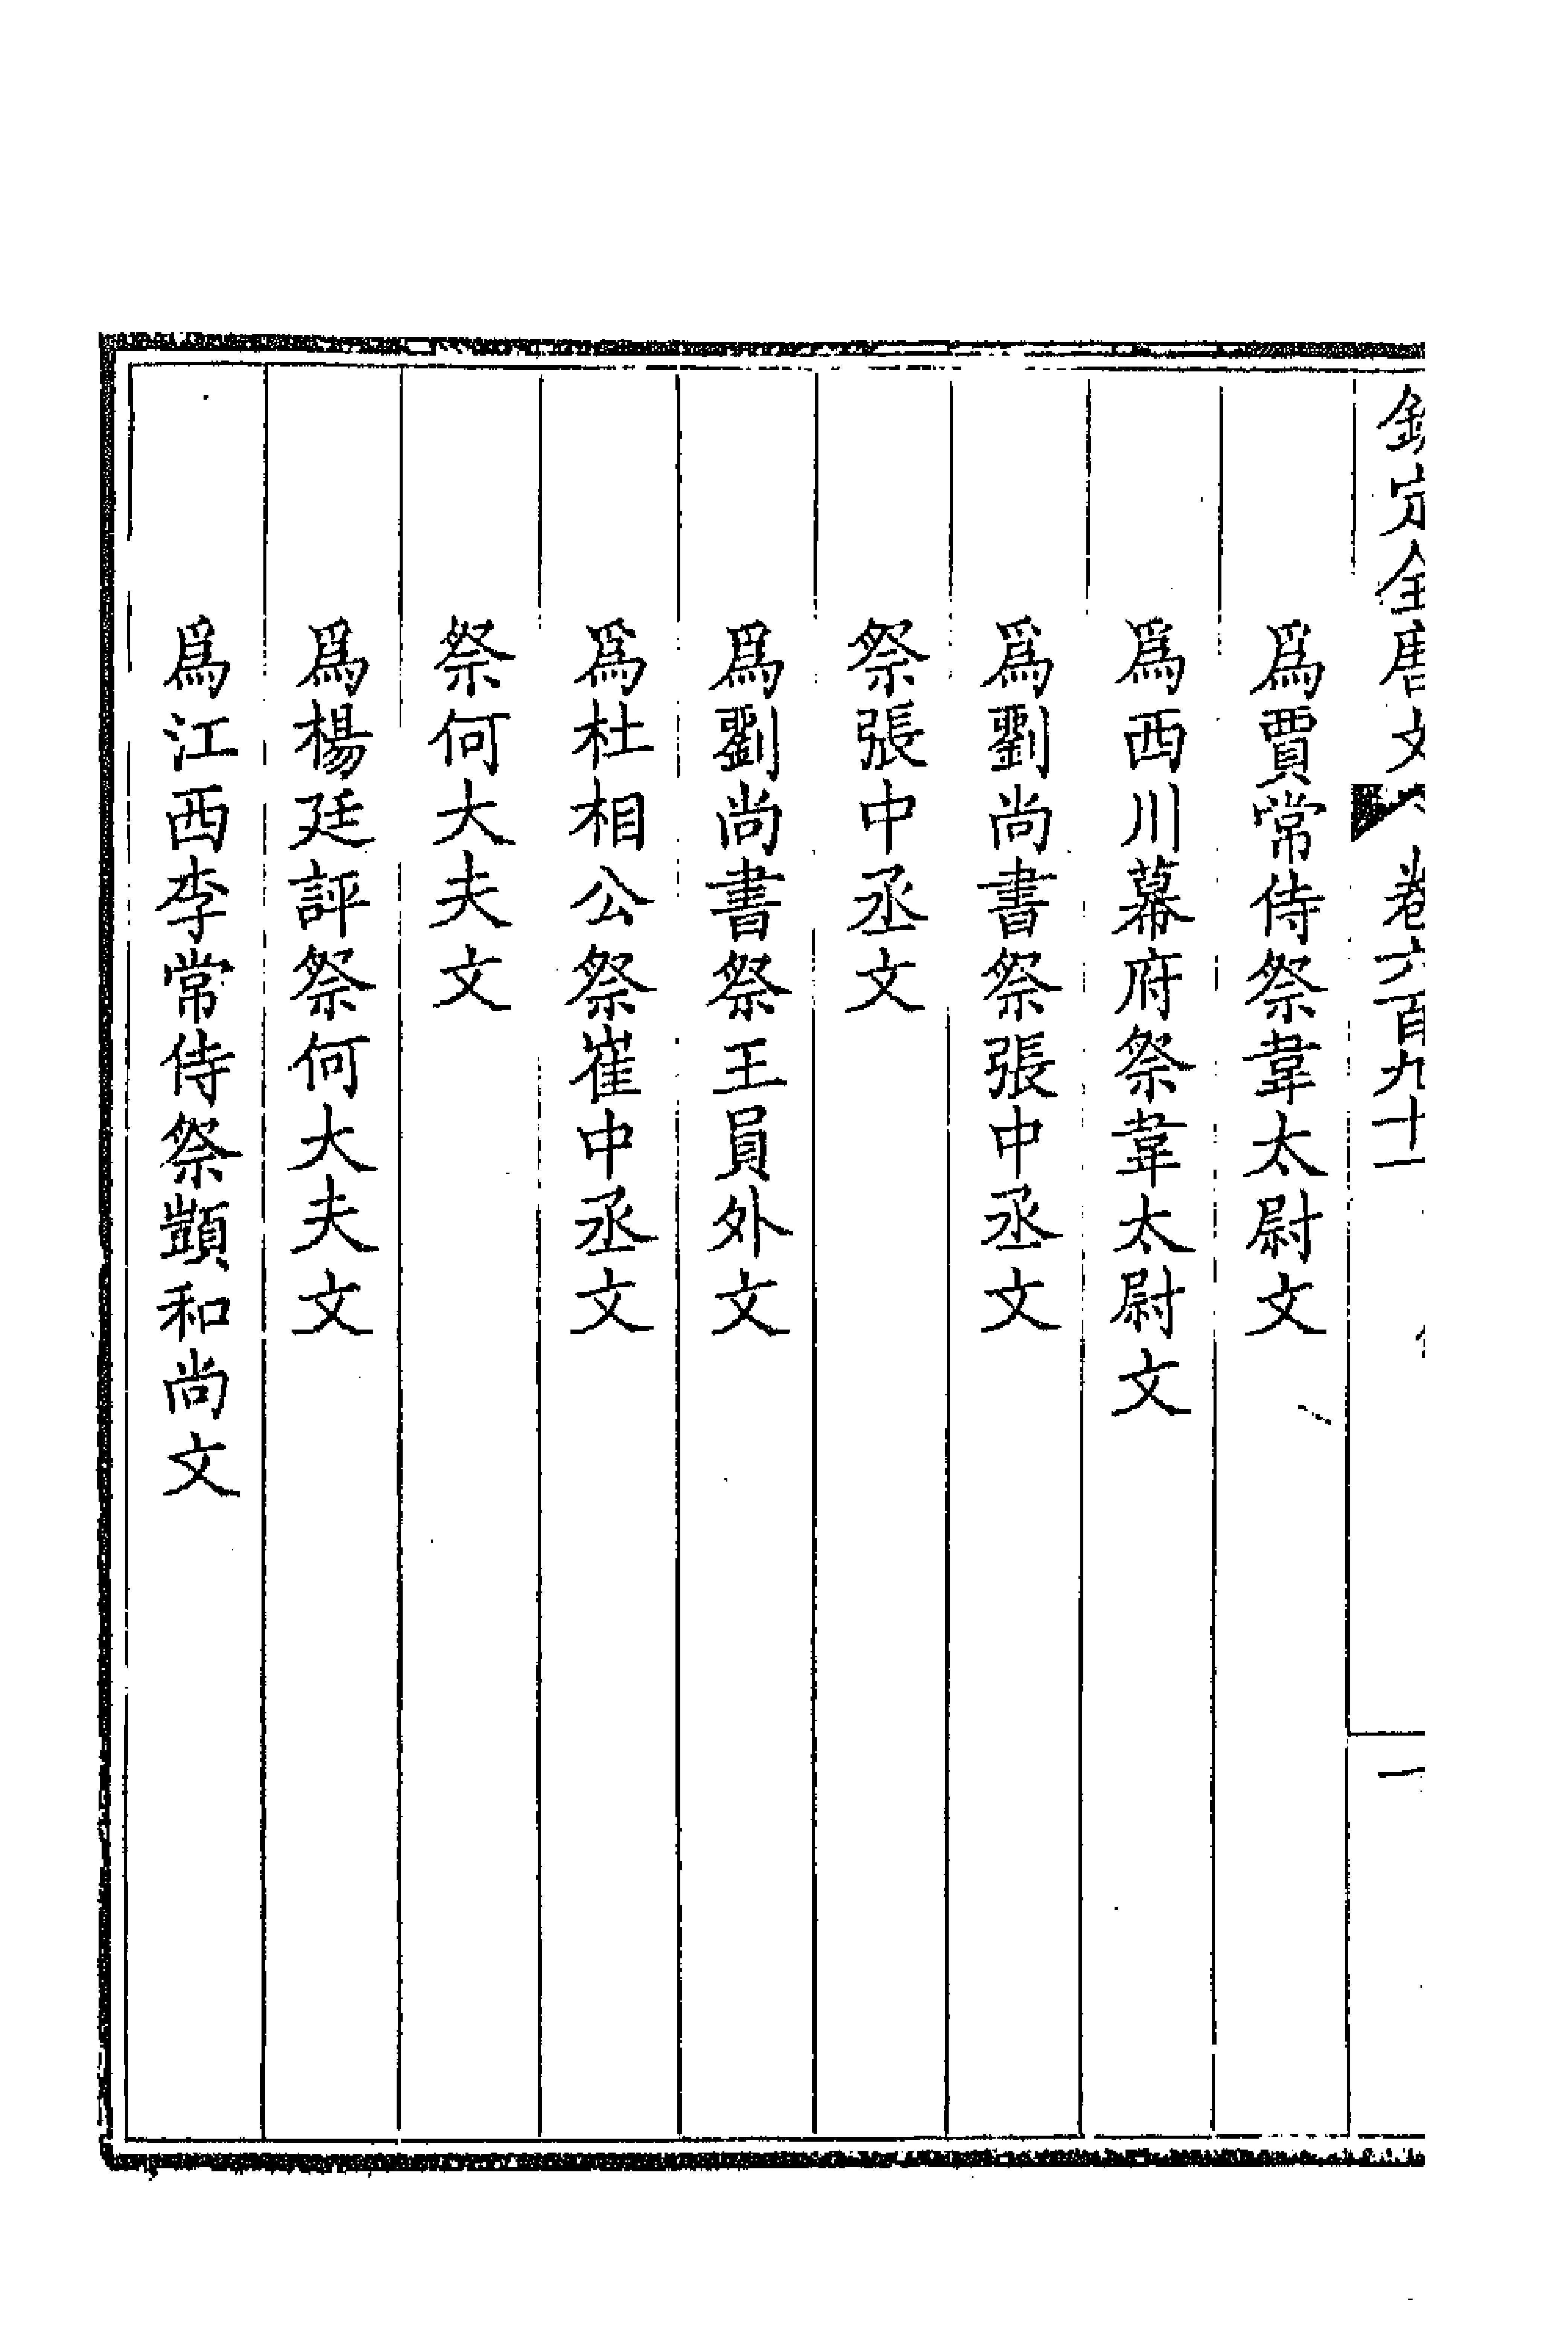 欽定全唐文 卷六百九十一 一
爲賈常侍祭韋太尉文
爲西川幕府祭韋太尉文
爲劉尚書祭張中丞文
祭張中丞文
爲劉尚書祭王員外文
爲杜相公祭崔中丞文
祭何大夫文
爲楊廷評祭何大夫文
爲江西李常侍祭顗和尚文